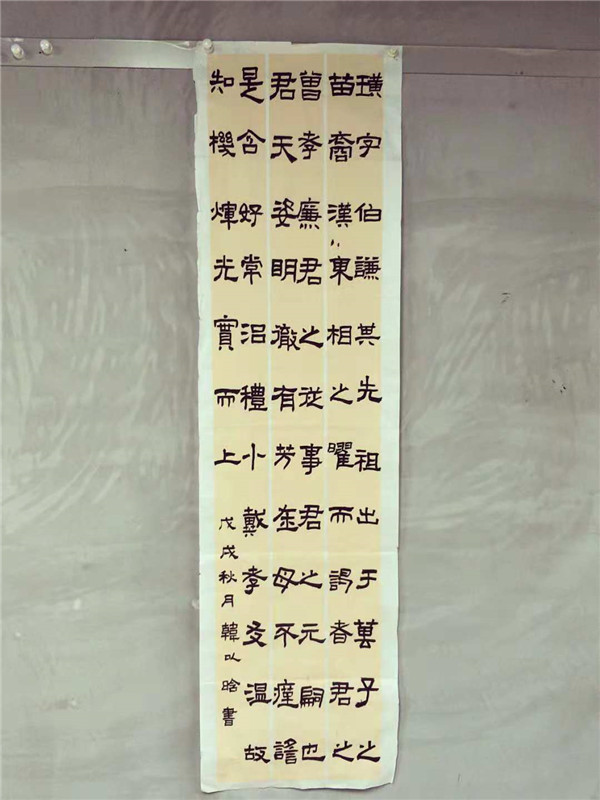 璜字伯謙其先祖出于萁子之
苗裔漢東相之曜而謁者君之
曾孝廉君之從事君之元嗣也
君天姿明徹有芳在母不瘽譫
是含好常治禮小戴孝友溫故
知機煇光實而上
戊戌秋月韓以晗書